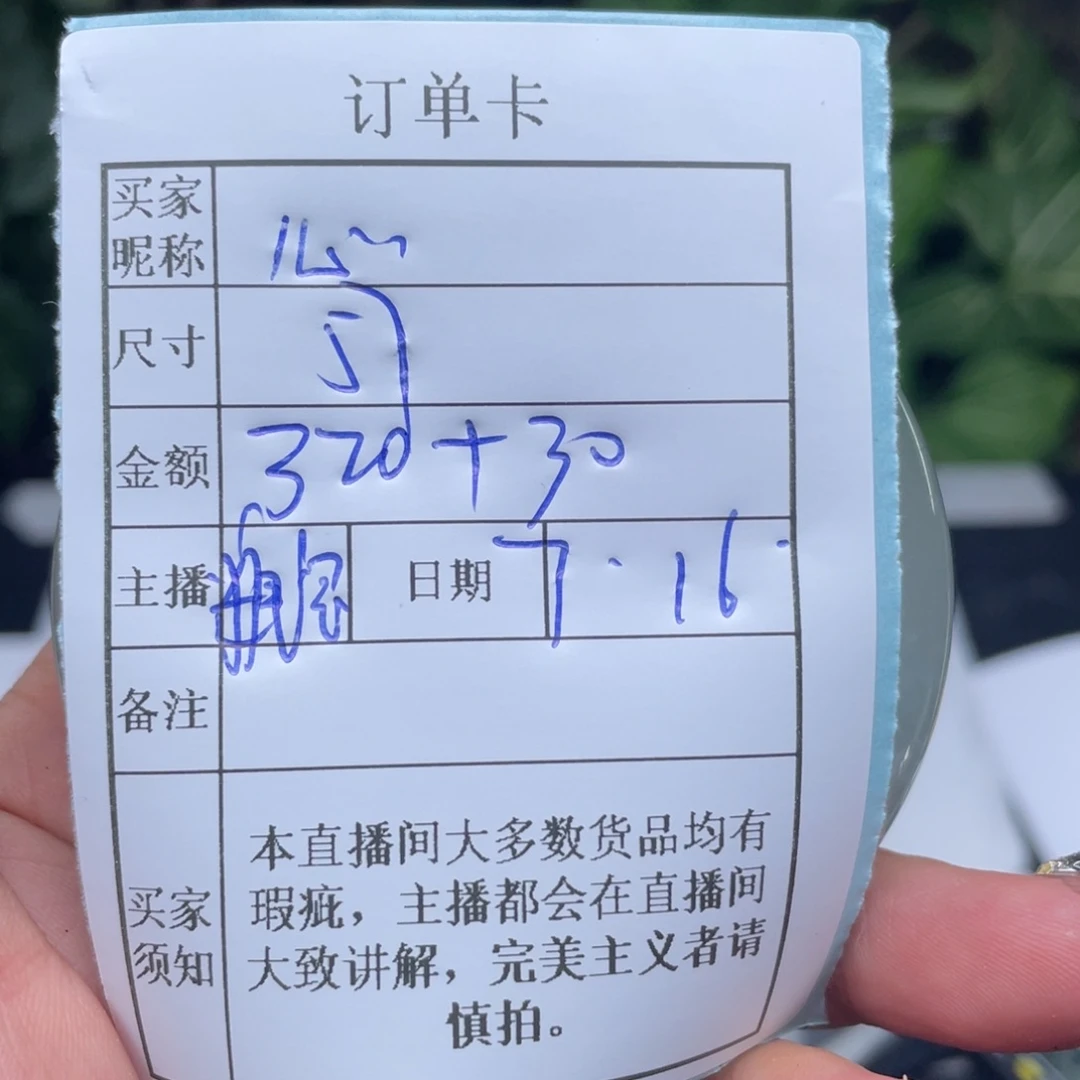 订单卡
买家昵称
尺寸
金额 320+30
主播 日期 7.16
备注
买家须知
本直播间大多数货品均有
瑕疵，主播都会在直播间
大致讲解，完美主义者请
慎拍。